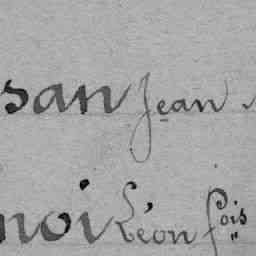 san Jean
noi Léon fois